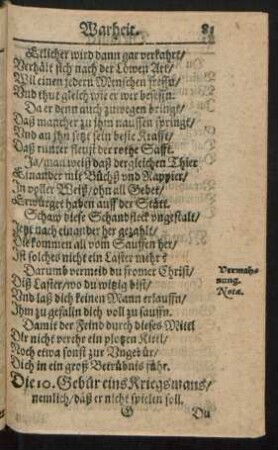 Warheit. 81
Etlicher wird dann gar verkahrt/
Verhält sich nach der Löwen Art/
Wil einen jedern Menschen fressn/
Und thut gleich wie er wer besessn.
Da er denn auch zuwegen bringt/
Daß mancher zu jhm naussen springt/
Und an jhn setzt sein beste Krafft/
Daß runter fleust der rothe Safft.
Ja/ man weiß daß dergleichen Thier
Einander mit Büchß und Rappier/
In voller Weiß/ ohn all Gebet/
Erwürget haben auff der Stätt.
Schaw diese Schandfleck ungestalt/
Jetzt nach einander her gezahlt/
Die kommen all vom Sauffen her/
Ist solches nicht ein Laster mehr?
Darumb vermeid du fromer Christ/
Diß Laster/ wo du witzig bist/
Und laß dich keinen Mann erlauffn/
Ihm zu gefalln dich voll zu sauffn.
Damit der Feind durch dieses Mittl
Dir nicht verehr ein plotzen Kittl/
Noch etwa sonst zur Ungebür/
Dich in ein groß Betrübnis führ.
Vermah-
nung.
Nota.
Die 10. Gebür eins Kriegsmans/
nemlich/ daß er nicht spielen soll.
G Du